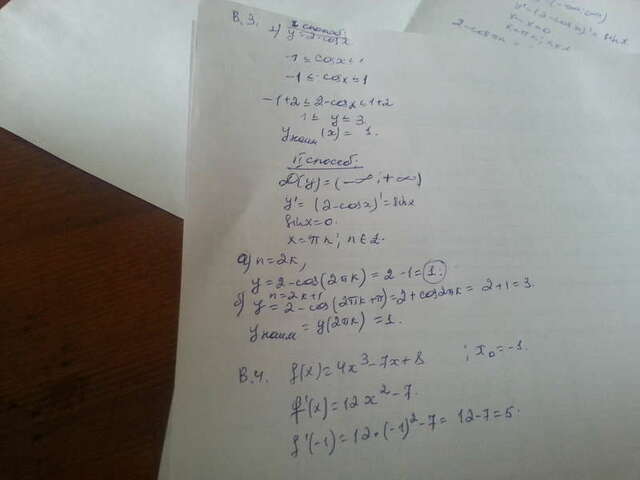 В.3. 1) I способ:
y=2-cosx
-1≤cosx≤1
-1≤-cosx≤1
-1+2≤2-cosx≤1+2
1≤ y≤3.
yнаим(x)=1.
II способ:
D(y)=(-∞;+∞)
y'=(2-cosx)'=sinx
sinx=0.
x=πn; n∈Z.
а) n=2k,
y=2-cos(2πk)=2-1=1.
б) n=2k+1
y=2-cos(2πk+π)=2+cos2πk=2+1=3.
yнаим=y(2πk)=1.
В.4. f(x)=4x³-7x+8 ; x₀=-1.
f'(x)=12x²-7.
f'(-1)=12·(-1)²-7=12-7=5.
y'=(2-cosx)'=sinx